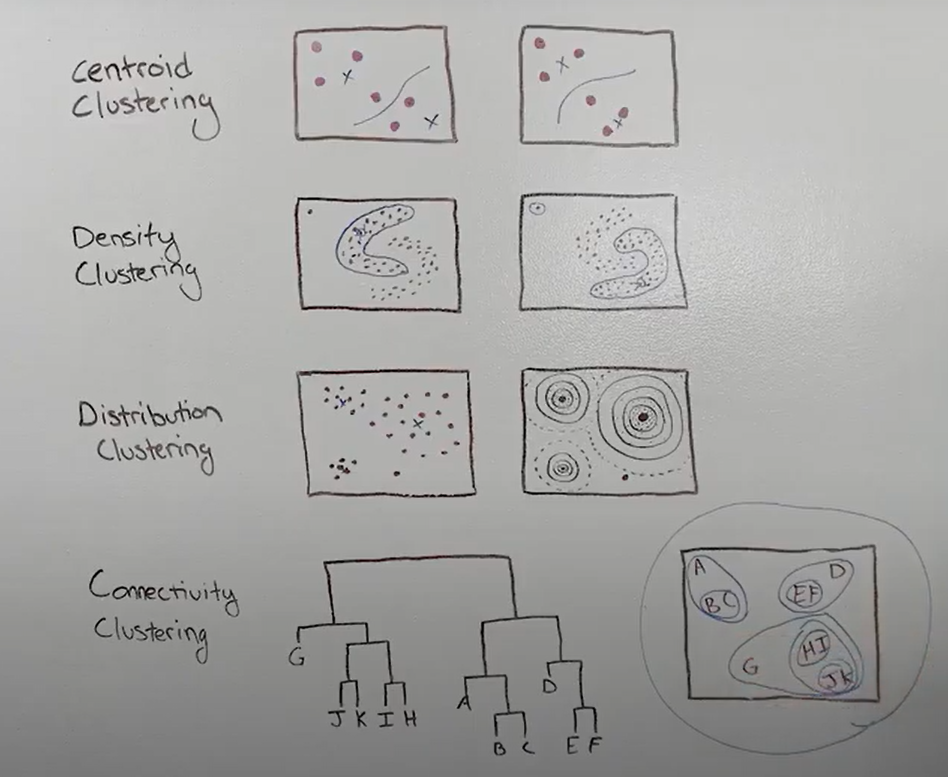 Centroid
Clustering
x
x
x
x
Density
Clustering
x
x
Distribution
Clustering
x
x
Connectivity
Clustering
G
J K I H
A
D
B C
E F
A
D
B C
E F
H I
G
J K